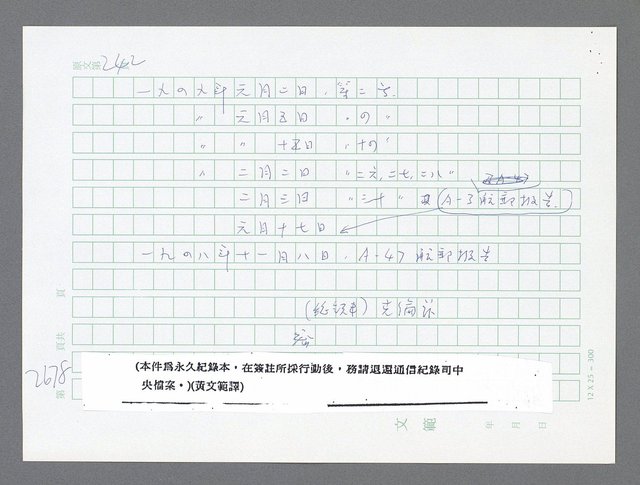 原文第242
一九四九年元月二日，第二号.
〃 元月五日 〃の〃
〃 〃 十五日 〃十の〃
〃 二月二日 〃二六,二七,二八〃
二月三日 〃三十〃 及 A-3 航部报告.
元月十七日
一九四八年十一月八日，A-47 航部报告
(總領事) 克倫訴
(本件爲永久紀錄本，在簽註所採行動後，務請退還通信紀錄司中
央檔案。)(黃文範譯)
頁 頁共 2678 第
12 X 25 = 300
文範 年 月 日